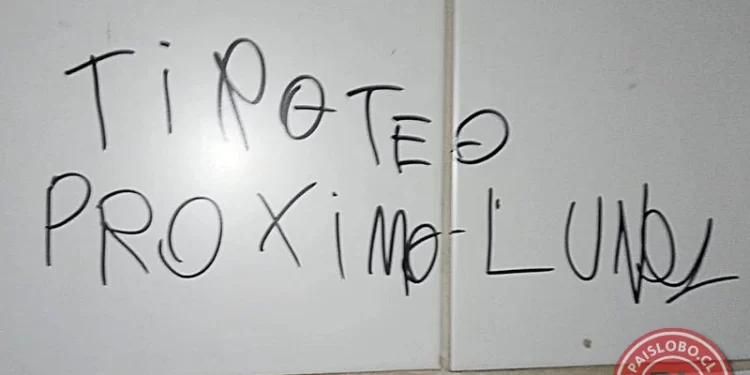 TiROTEO
PROXiMO-LUNES
PAISLOBO.CL